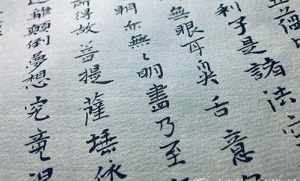 五蘊
利子是諸法空
無眼耳鼻舌意
明亦無〻明盡乃至
得故菩提薩埵依
離顛倒夢想究竟涅